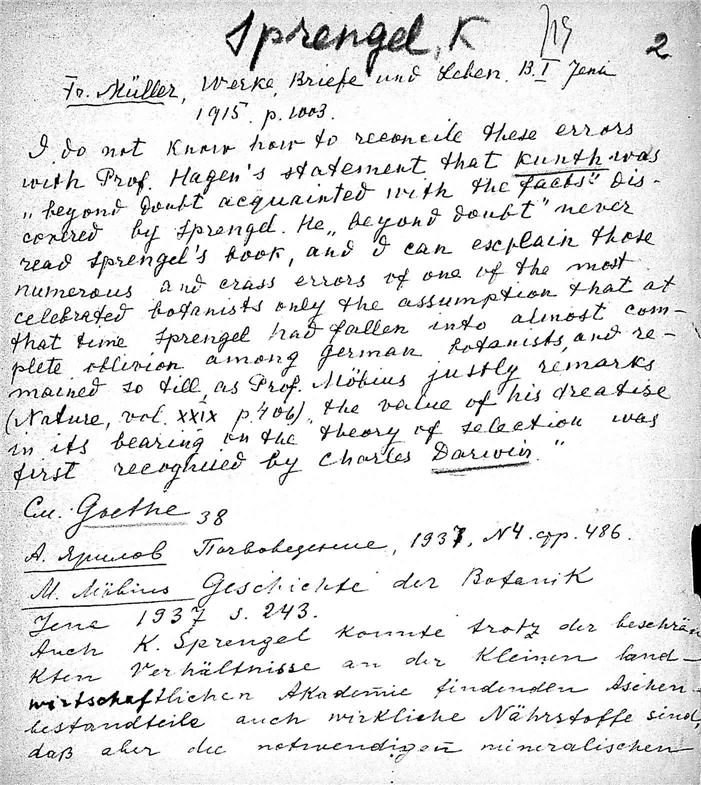 Sprengel, K
2
Fr. Müller, Werke, Briefe und Leben. B.I Jena
1915. p. 1003.
I do not know how to reconcile these errors
with Prof. Hagen's statement that Kunth was
„beyond doubt acquainted with the facts" dis-
covered by Sprengel. He „beyond doubt" never
read Sprengel's book, and I can explain those
numerous and crass errors of one of the most
celebrated botanists only the assumption that at
that time Sprengel had fallen into almost com-
plete oblivion among german botanists, and re-
mained so till, as Prof. Möbius justly remarks
(Nature, vol. XXIX p. 406), the value of his dreatise
in its bearing on the theory of selection was
first recognised by Charles Darwin."
См. Goethe 38
А. Ярилов Почвоведение, 1937, N4. стр. 486.
M. Möbius Geschichte der Botanik
Jena 1937 S. 243.
Auch K. Sprengel konnte trotz der beschrän
kten Verhältnisse an der kleinen land-
wirtschaftlichen Akademie findenden Aschen-
bestandteile auch wirkliche Nährstoffe sind,
daß aber die notwendigen mineralischen